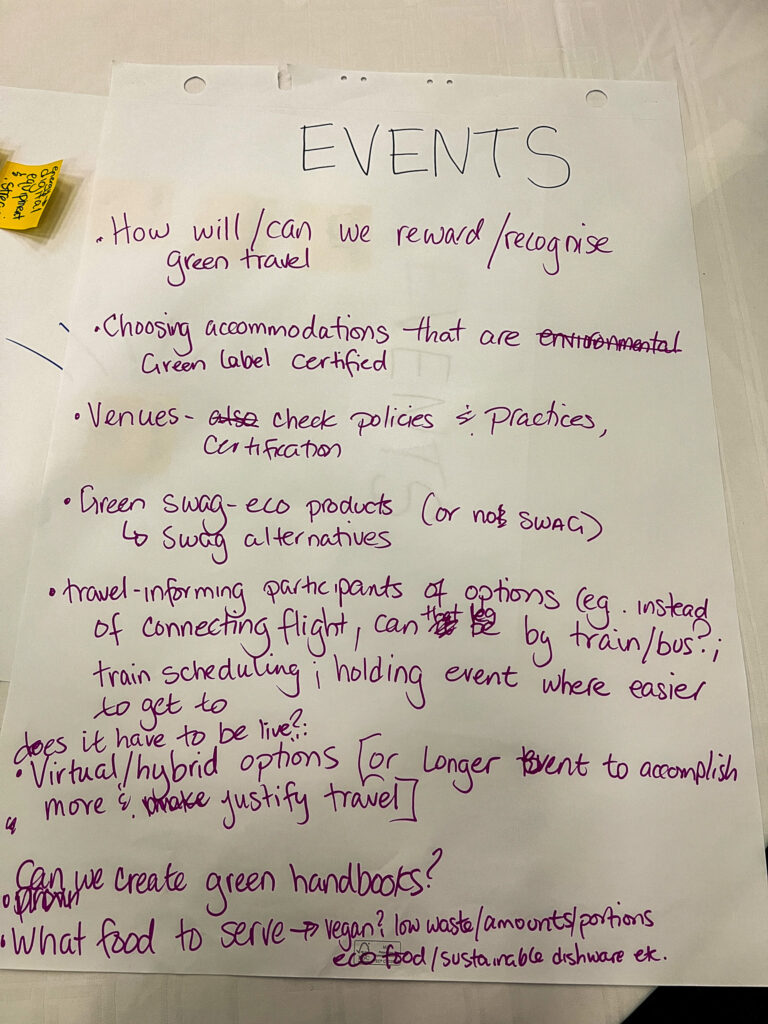 EVENTS
• How will/can we reward/recognise
green travel
• Choosing accommodations that are environmental
Green Label certified
• Venues - also check policies & practices,
certification
• Green swag - eco products (or not SWAG)
↳ Swag alternatives
• travel - informing participants of options (eg. instead
of connecting flight, can that leg be by train/bus?;
train scheduling; holding event where easier
to get to
does it have to be live?:
• Virtual/hybrid options [or longer event to accomplish
more & make justify travel]
Can we create green handbooks?
• What food to serve → vegan? low waste/amounts/portions
eco food/sustainable dishware etc.
digital
equipment